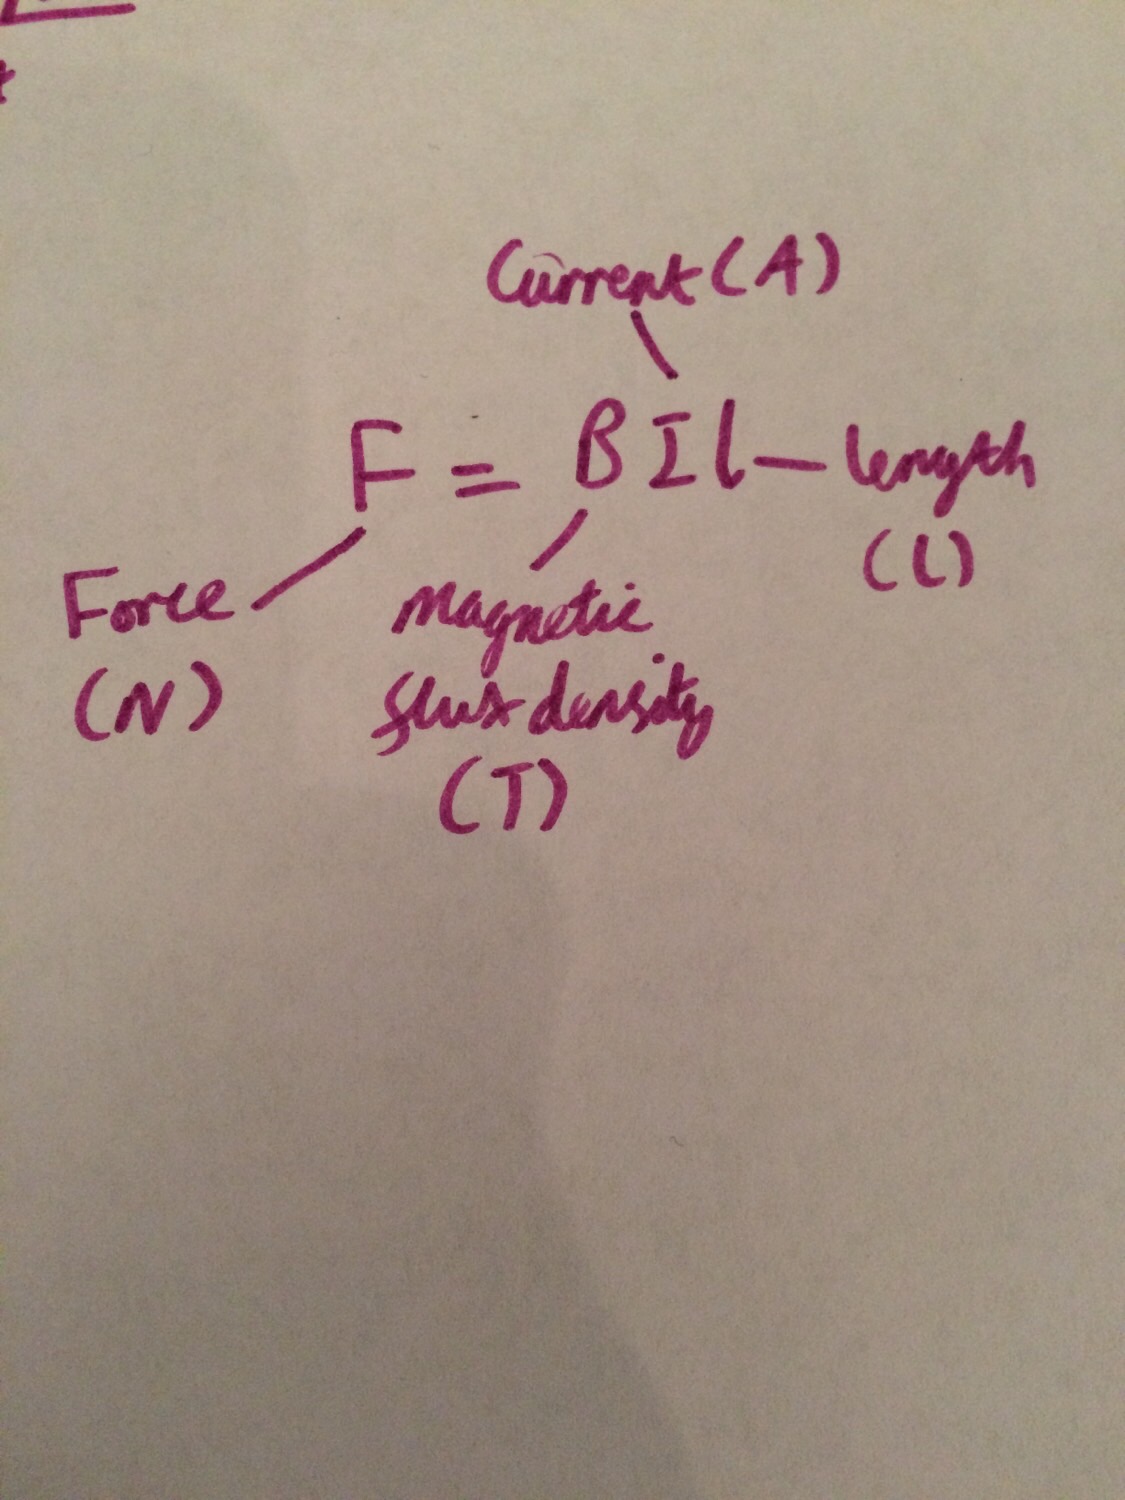 Current (A)
F = BIl — length
(L)
Force
(N)
magnetic
flux density
(T)